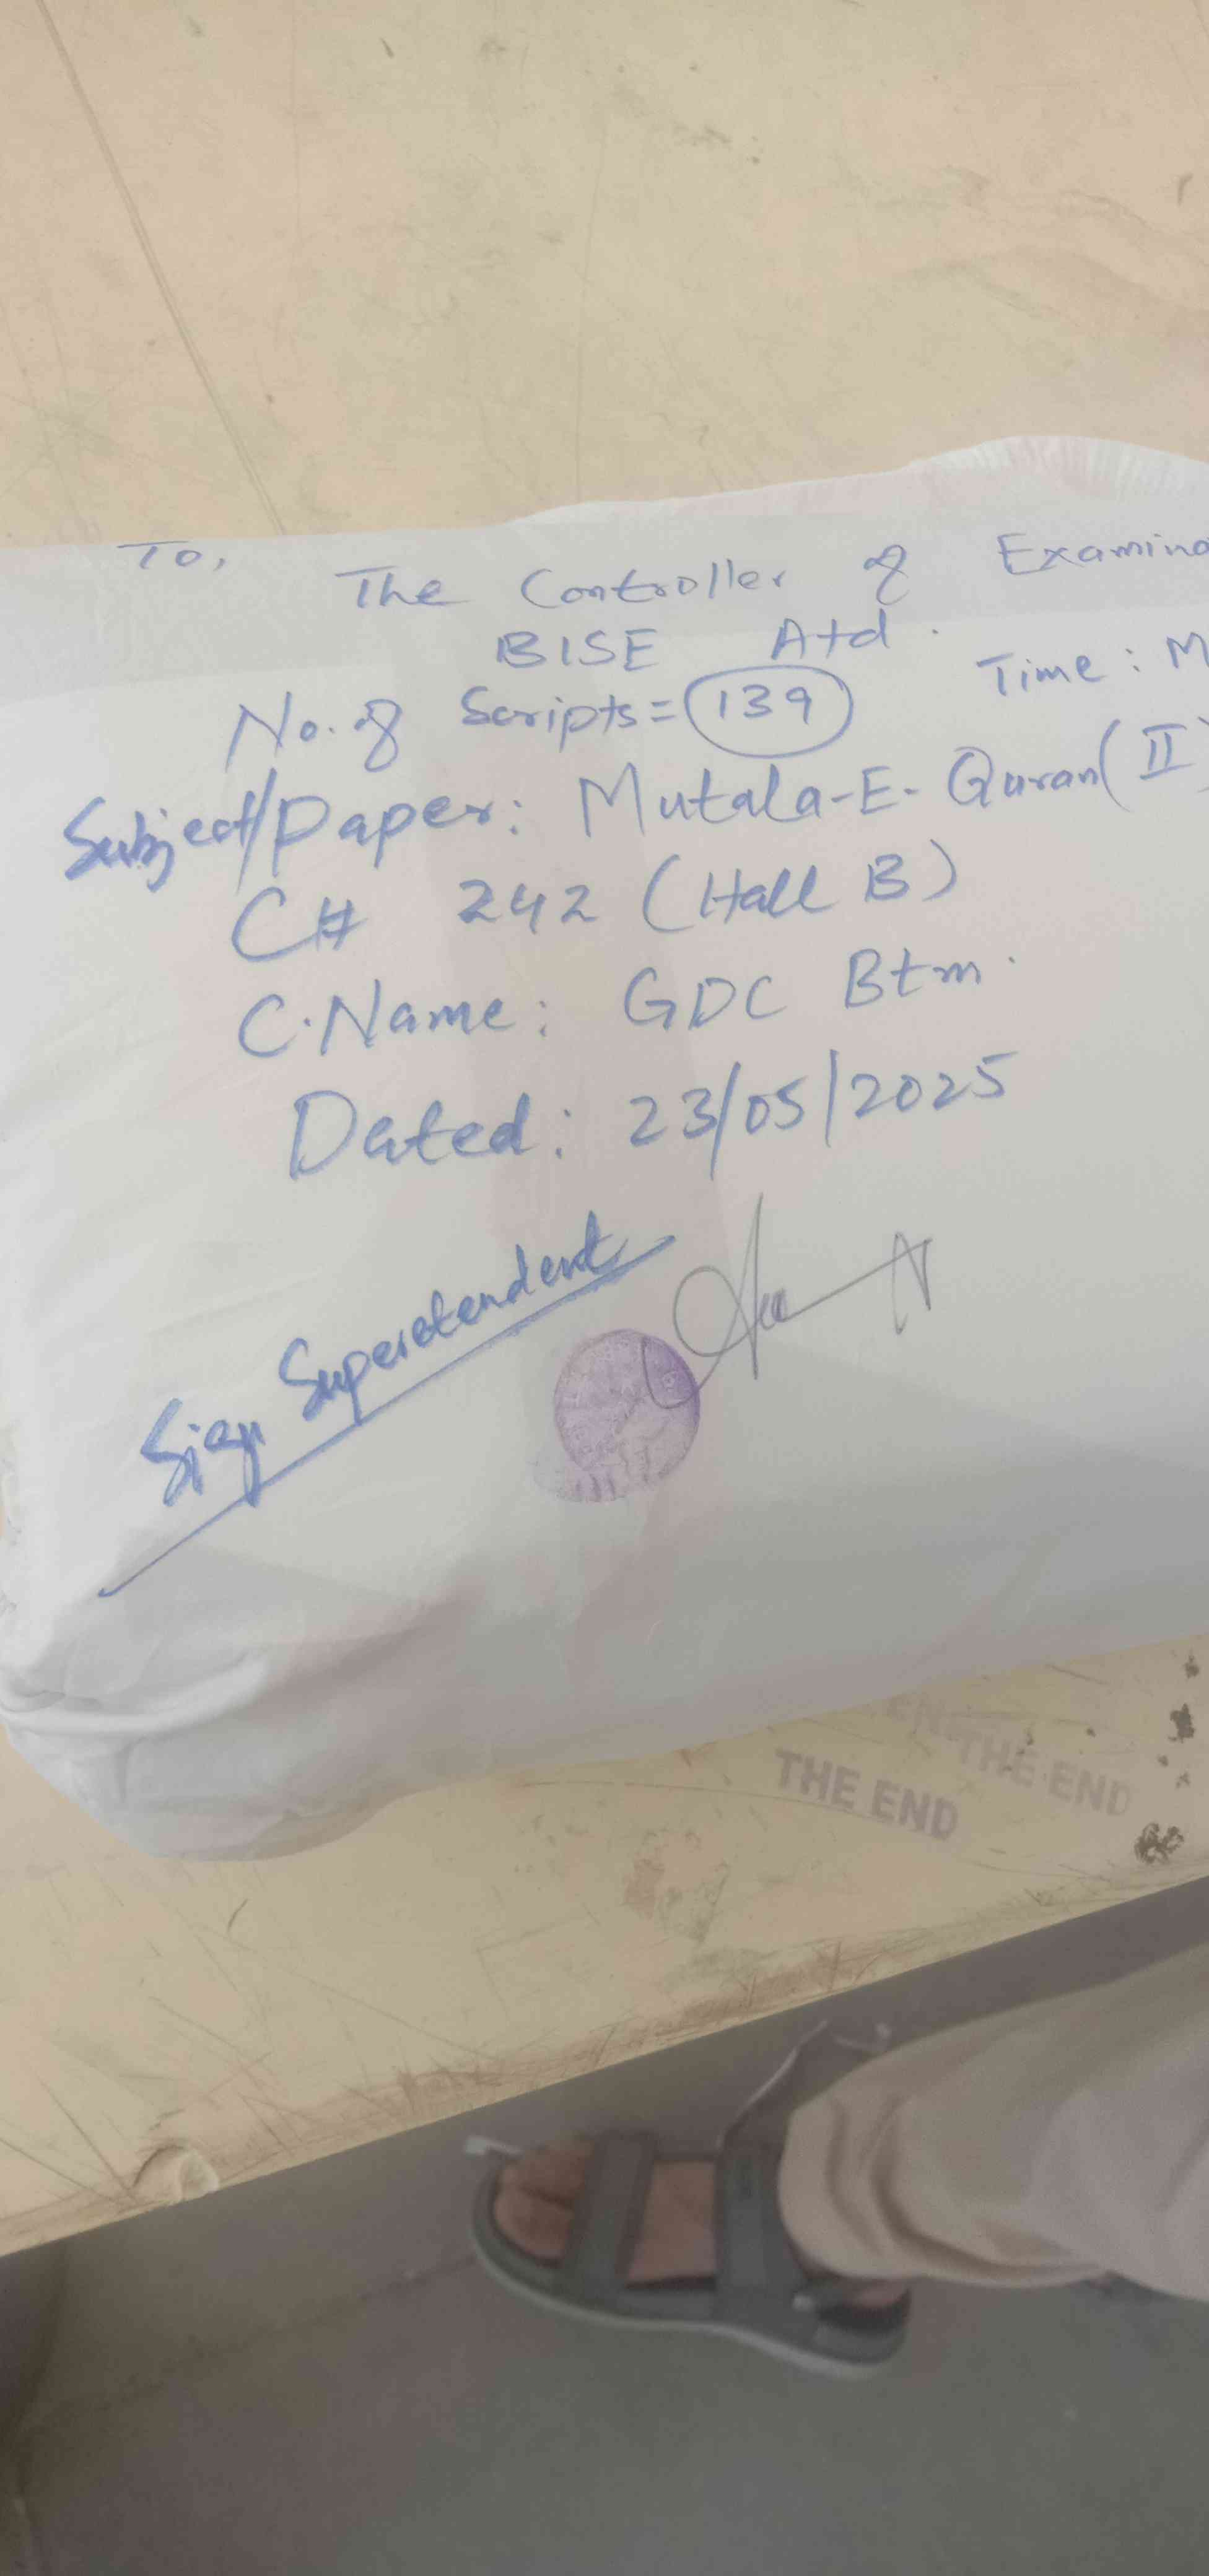 To,
The Controller of Examina
BISE Atd.
Time : M
No. of Scripts = 139
Subject/Paper: Mutala-E-Quran (II)
C# 242 (Hall B)
C.Name: GDC Btm.
Dated: 23/05/2025
Sign Superetendent
THE END
THE END